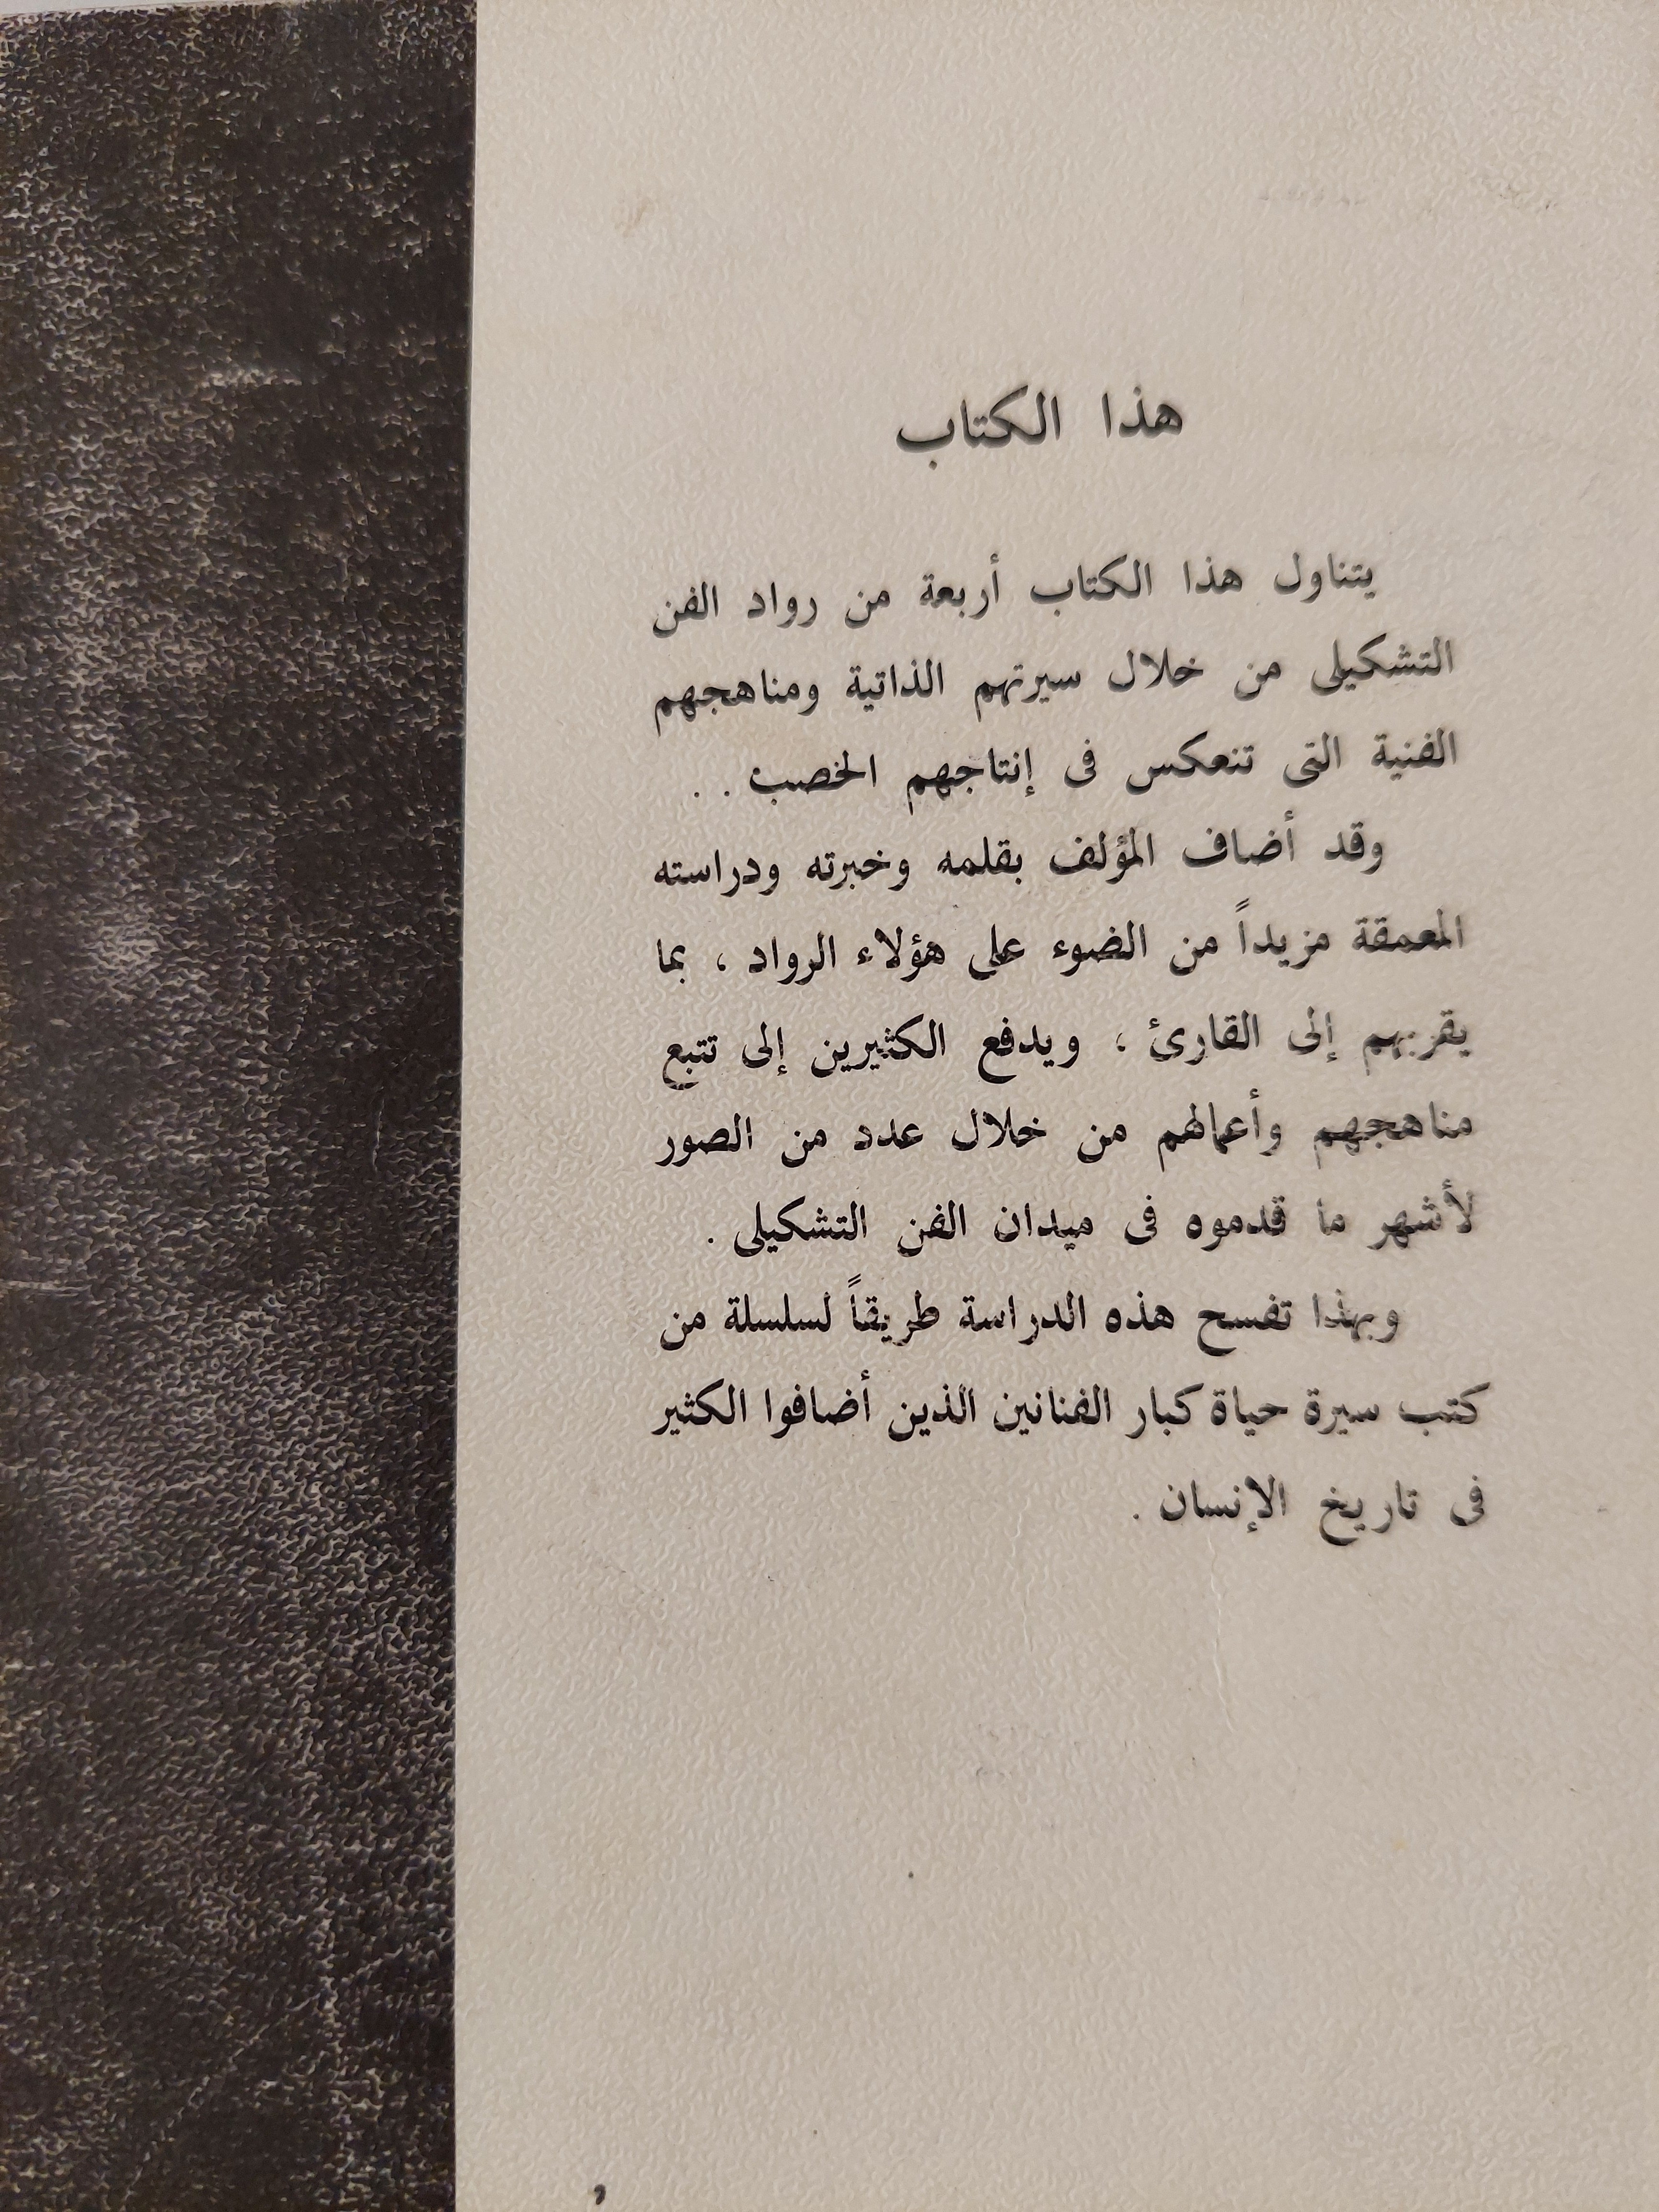 هذا الكتاب
يتناول هذا الكتاب أربعة من رواد الفن
التشكيلى من خلال سيرتهم الذاتية ومناهجهم
الفنية التى تنعكس فى إنتاجهم الخصب . .
وقد أضاف المؤلف بقلمه وخبرته ودراسته
المعمقة مزيداً من الضوء على هؤلاء الرواد ، بما
يقربهم إلى القارئ ، ويدفع الكثيرين إلى تتبع
مناهجهم وأعمالهم من خلال عدد من الصور
لأشهر ما قدموه فى ميدان الفن التشكيلى .
وبهذا تفسح هذه الدراسة طريقاً لسلسلة من
كتب سيرة حياة كبار الفنانين الذين أضافوا الكثير
فى تاريخ الإنسان .